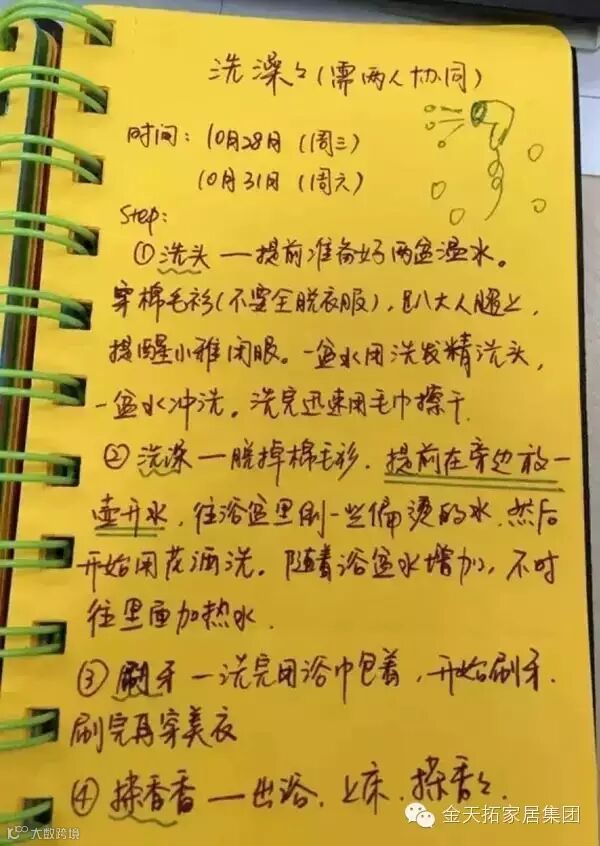 洗澡々(需两人协同)
时间：10月28日（周三）
10月31日（周六）
Step：
①洗头—提前准备好两盆温水。
穿棉毛衫(不要全脱衣服)，趴大人腿上，
提醒小雅闭眼。一盆水用洗发精洗头，
一盆水冲洗。洗完迅速用毛巾擦干.
②洗澡—脱掉棉毛衫．提前在旁边放一
壶开水，往浴盆里倒一些偏烫的水．然后
开始用花洒洗。随着浴盆水增加，不时
往里面加热水．
③刷牙—洗完用浴巾包着，开始刷牙．
刷完再穿美衣
④擦香香—出浴．上床．擦香々
金天拓家居集团
大数跨境